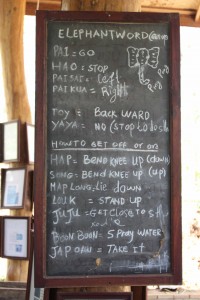 ELEPHANTWORD
PAI = GO
HAO = STOP
PAI SAI = Left
PAI KUA = Right
TOY = BACK WARD
YAYA = NO (STOP
HOW TO GET OFF or ON
HAP = BEND KNEE UP (DOWN)
SONG = BEND KNEE UP (UP)
MAP LONG = LIE DOWN
LOUK = STAND UP
GET CLOSE
BOON BOON = SPRAY WATER
JAP OAN = TAKE IT